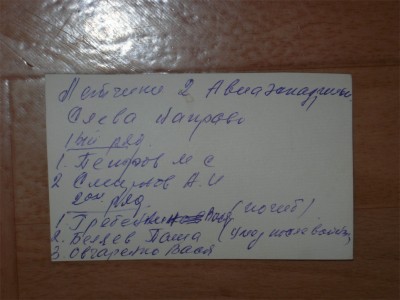 Летчики 2 Авиаэскадрильи
Слева направо
1ый ряд.
1. Петров М С
2 Смирнов А. И
2ой ряд.
1 Гребен Вова (погиб)
2. Беляев Паша (умер после войны)
3 Овчаренко Вася